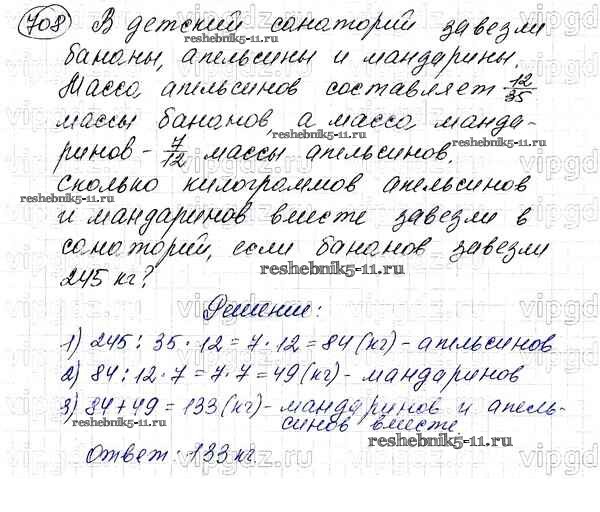 708 В детский санаторий завезли
бананы, апельсины и мандарины.
Масса апельсинов составляет 12/35
массы бананов, а масса манда-
ринов - 7/12 массы апельсинов.
Сколько килограммов апельсинов
и мандаринов вместе завезли в
санаторий, если бананов завезли
245 кг?
Решение:
1) 245 : 35 · 12 = 7 · 12 = 84 (кг) - апельсинов
2) 84 : 12 · 7 = 7 · 7 = 49 (кг) - мандаринов
3) 84 + 49 = 133 (кг) - мандаринов и апель-
синов вместе.
Ответ: 133 кг.
reshebnik5-11.ru
reshebnik5-11.ru
reshebnik5-11.ru
reshebnik5-11.ru
reshebnik5-11.ru
reshebnik5-11.ru
vipgdz.ru